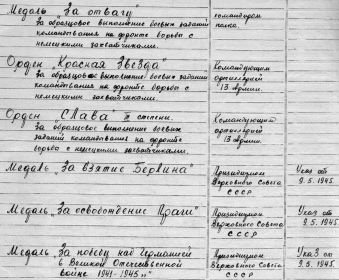 Медаль "За отвагу"
За образцовое выполнение боевых заданий
командования на фронте борьбы с
немецкими захватчиками.
командором
полка.
Орден "Красная Звезда"
За образцовое выполнение боевых заданий
командования на фронте борьбы с
немецкими захватчиками.
Командующим
артиллерией
13 Армии.
Орден "Слава" III степени.
За образцовое выполнение боевых
заданий командования на фронте
борьбы с немецкими захватчиками.
Командующий
артиллерией
13 Армии.
Медаль "За взятие Берлина"
Президиум
Верховного Совета
СССР
Указ от
9.5.1945.
Медаль "За освобождение Праги"
Президиум
Верховного Совета
СССР
Указ от
9.5.1945.
Медаль "За победу над Германией
в Великой Отечественной
войне 1941-1945 г."
Президиум
Верховного Совета
СССР
Указ от
9.5.1945.